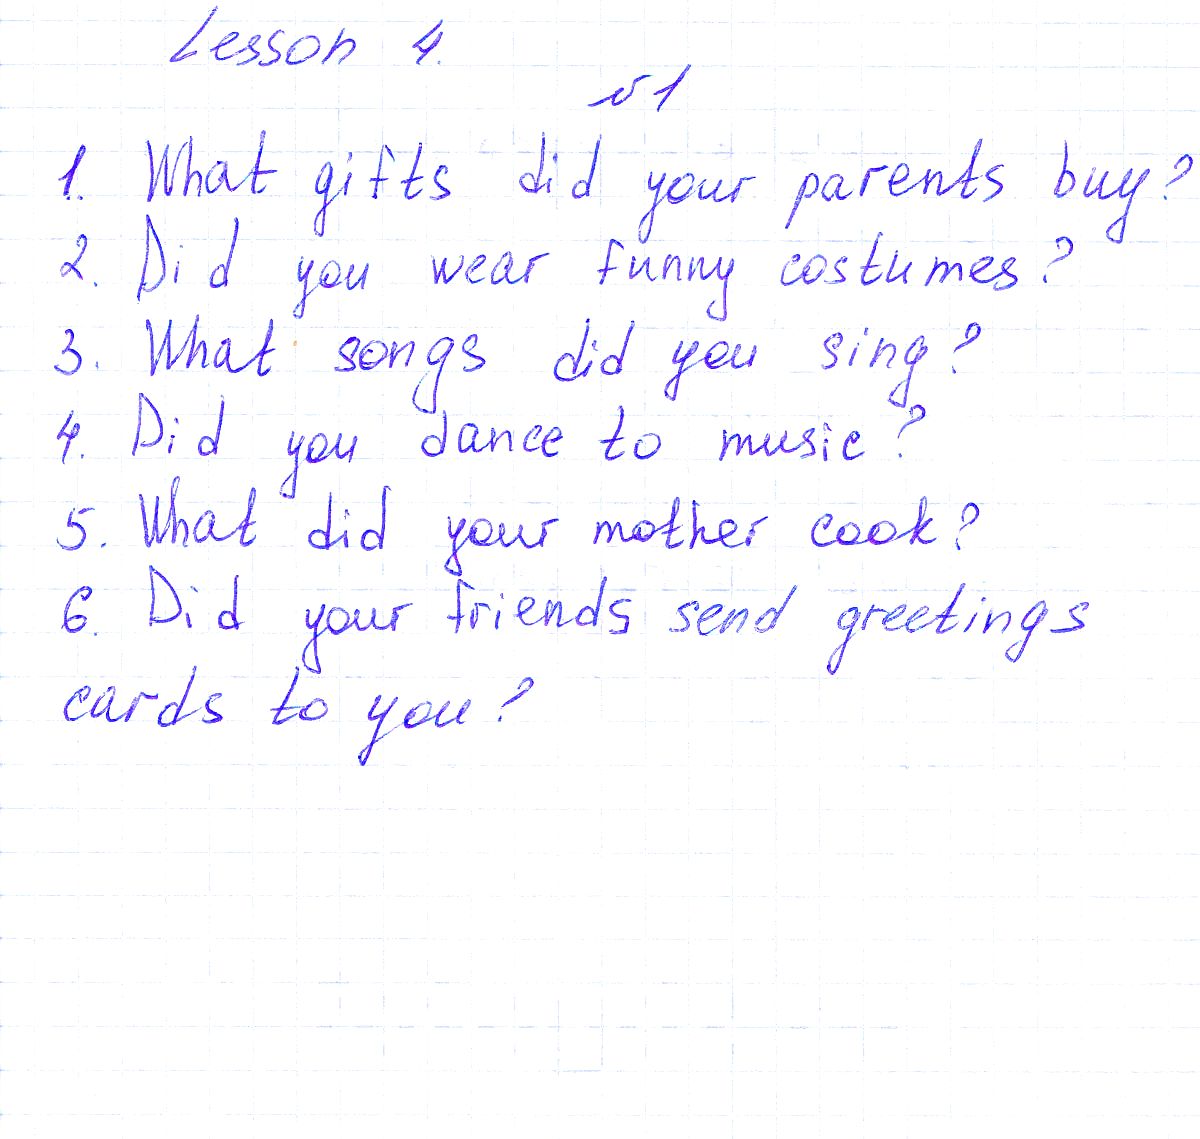 Lesson 4.
№1
1. What gifts did your parents buy?
2. Did you wear funny costumes?
3. What songs did you sing?
4. Did you dance to music?
5. What did your mother cook?
6. Did your friends send greetings
cards to you?